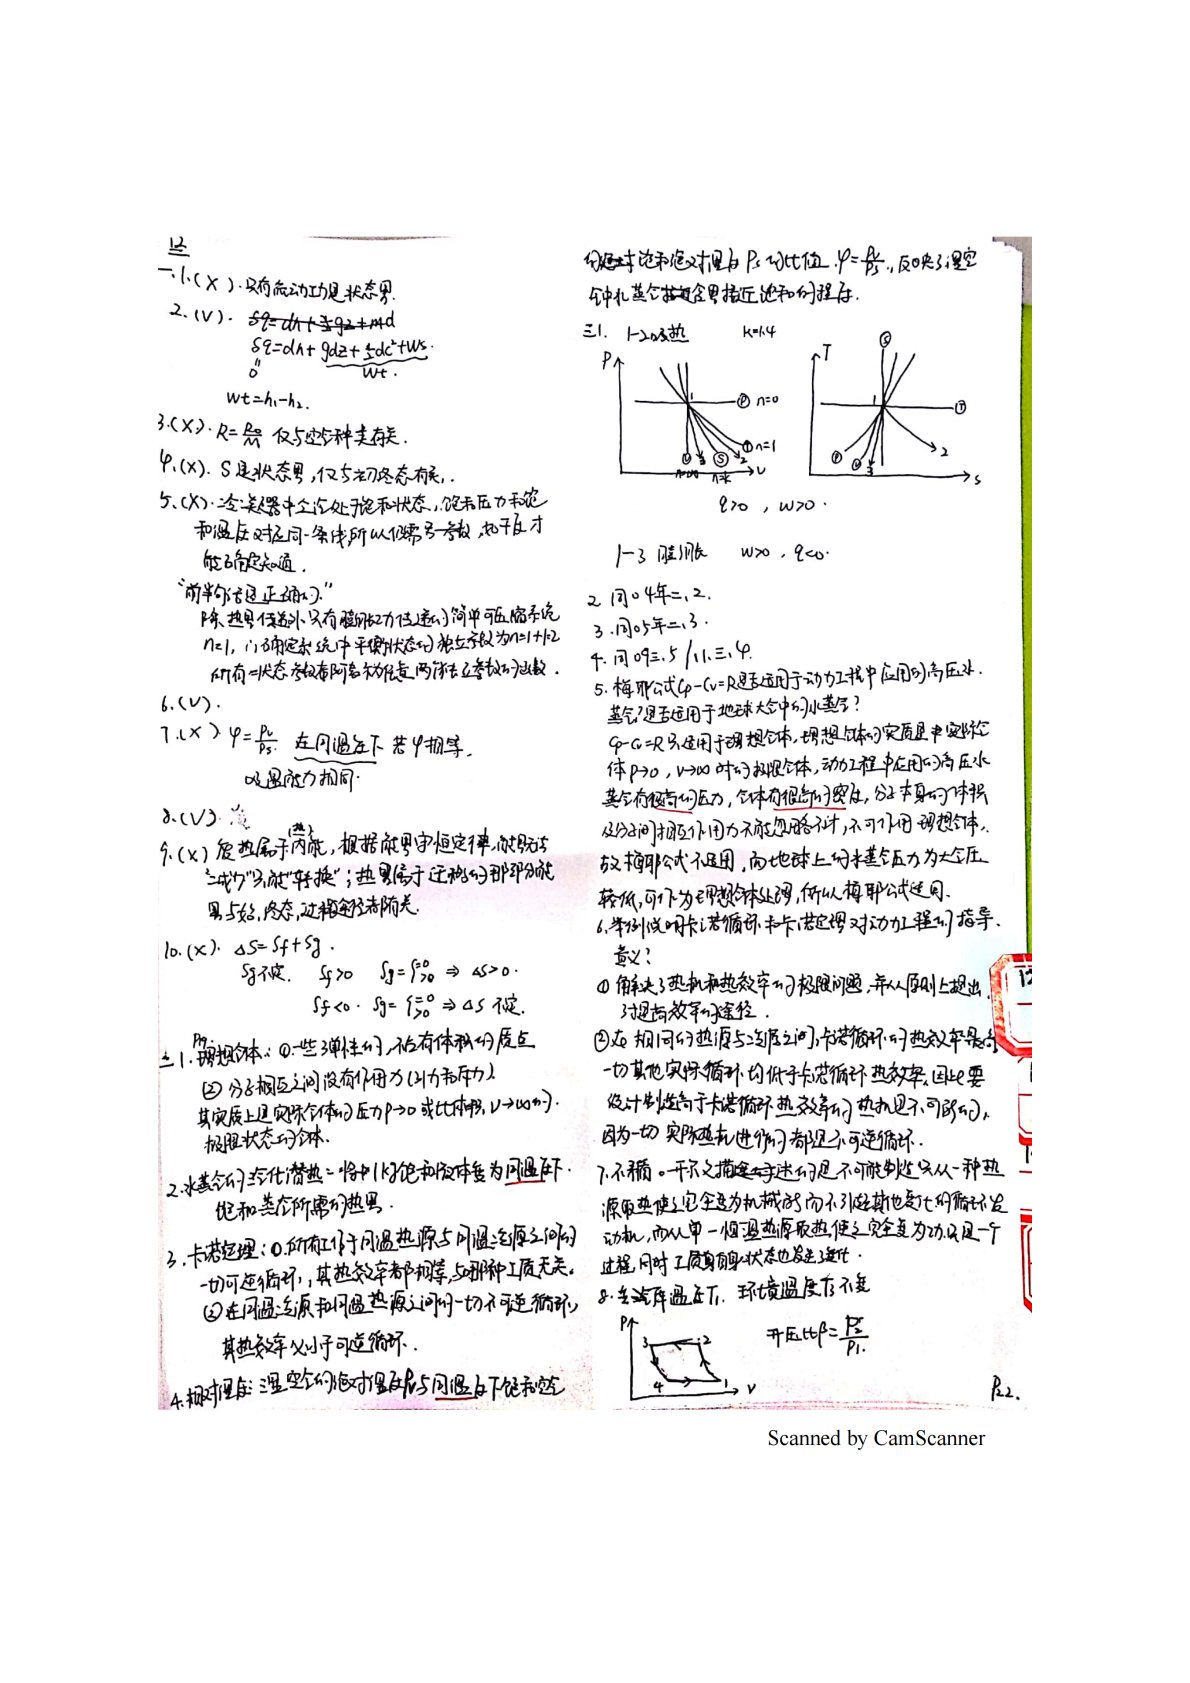 12
一.1.(X).只有流动功是状态量.
2.(V). δq=dh+½gz+
δq=dh+gdz+½dc²+Ws.
0 Wt.
Wt=h₁-h₂.
3.(X). R=R₀/M 仅与空气种类有关.
4.(X). S是状态量,仅与初终态有关.
5.(X).冷凝器中 处于饱和状态,饱和压力和饱
和温度对应同一条线,所以仅需另一参数,如干度才
能确定知道.
"前半句话是正确的."
除热量传递外,只有膨胀功传递的简单可压缩系统
n=1,∴确定系统中平衡状态的独立参数为n=1+1=2
所有状态参数都可表示为任意两个独立参数的函数.
6.(V).
7.(X) φ=Pv/Ps 在同温度下 若φ相等.
吸湿能力相同.
8.(V).
9.(X) 废热属于内能,根据能量守恒定律,能既无法
只能"转换";热量属于迁移的那部分能
量与始,终态,过程途径都有关.
(热)
10.(X). ΔS=Sf+Sg.
Sg不定. Sf>0 Sg={=0 >0 ⇒ ΔS>0.
Sf<0. Sg={=0 >0 ⇒ΔS 不定.
二1.理想气体:①一些弹性的,不占有体积的质点
②分子相互之间没有作用力(引力和斥力)
其实质上是实际气体的压力P→0 或比体积,V→∞时.
极限状态的气体.
2.水蒸气的汽化潜热=将1kg饱和液体变为同温度下.
饱和蒸气所需的热量.
3.卡诺定理:①所有工作于同温热源与同温冷源之间的
一切可逆循环,其热效率都相等,与哪种工质无关.
②在同温冷源和同温热源之间的一切不可逆循环,
其热效率必小于可逆循环.
4.相对湿度:湿空气的绝对湿度Pv与同温度下饱和空气
的绝对湿度Ps的比值.φ=Pv/Ps,反映了湿空
气中水蒸气含量接近饱和的程度.
三1. 1-2吸热 k=1.4
P T Ⓢ
1 Ⓟ n=0 1 Ⓣ
Ⓣ n=1
Ⓥ 3 Ⓢ 2 Ⓟ Ⓥ 3 2
n=∞ n=k V S
q>0 , w>0.
1-3 膨胀 w>0, q<0.
2.同04年二,2.
3.同05年二,3.
4.同09三.5/11.三.4.
5.梅耶公式Cp-Cv=R是否适用于动力工程中应用的高压水
蒸气?是否适用于地球大气中的水蒸气?
Cp-Cv=R只适用于理想气体,理想气体的实质是实际气
体P→0,V→∞时的极限气体,动力工程中应用的高压水
蒸气有很高的压力,气体有很高的密度,分子本身的体积
及分子间相互作用力不能忽略不计,不可作用理想气体,
故梅耶公式不适用,而地球上的水蒸气压力为大气压
较低,可作为理想气体处理,所以梅耶公式适用.
6.举例说明卡诺循环和卡诺定理对动力工程的指导
意义?
①解决了热机和热效率的极限问题,并从原则上提出
了提高效率的途径.
②在相同的热源与冷源之间,卡诺循环的热效率最高
一切其他实际循环均低于卡诺循环热效率,因此要
设计制造高于卡诺循环热效率的热机是不可能的,
因为一切实际热机进行的都是不可逆循环.
7.不矛盾。开尔文描述的是不可能制造只从一种热
源取热使之完全变为机械能而不引起其他变化的循环发
动机,而从单一恒温热源取热,使之完全变为功只是一个
过程,同时工质自身状态也发生变化.
8.冷库温度T₁.环境温度T₃不变
P
3 2
4 1
V
升压比β=P₂/P₁.
P22.
Scanned by CamScanner